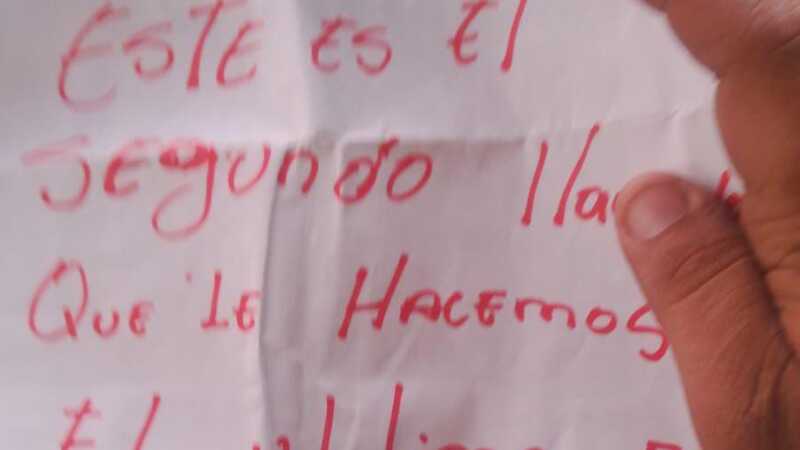 ESTE ES El
SEgUNdO lla
QUE LE HACEMOS
El